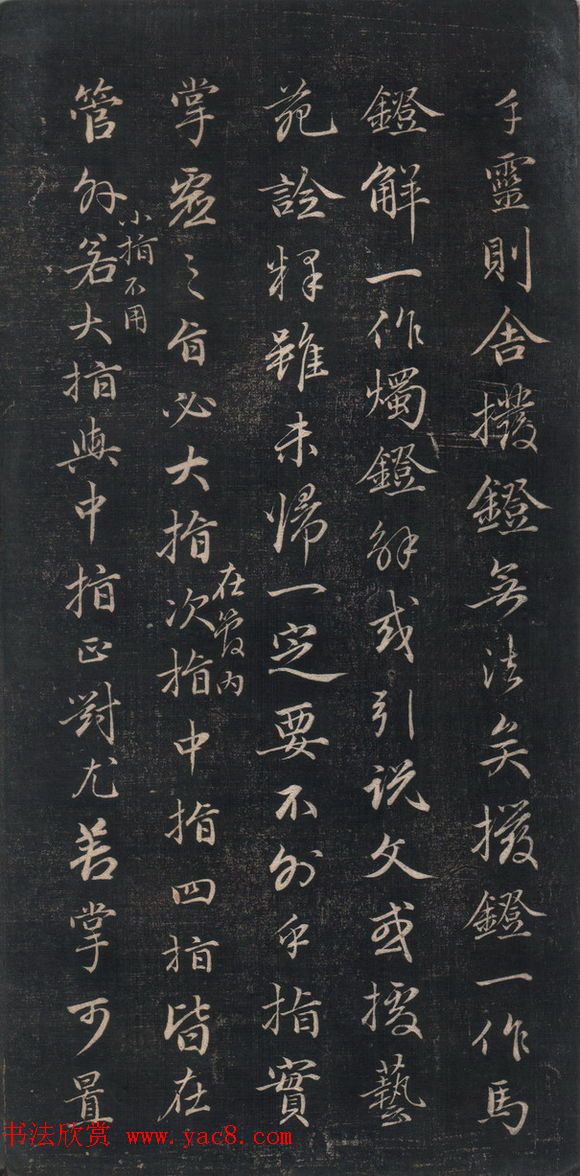 手靈則舍撥鐙無法矣撥鐙一作馬
鐙解一作燭鐙解或引說文或援藝
苑詮釋雖未歸一定要不外乎指實
掌虛之旨必大指次指中指四指皆在
在管内
管外若大指與中指正對尤若掌可置
小指不用
书法欣赏 www.yac8.com